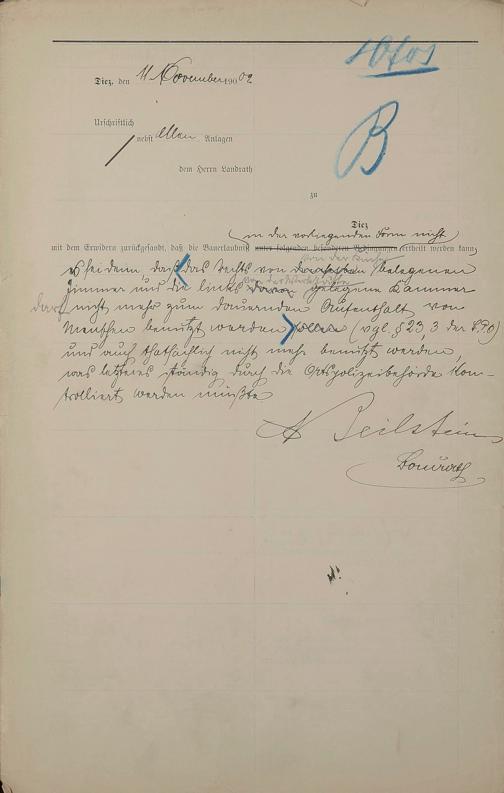 Diez, den 11 November 1902
Urschriftlich
nebst allen Anlagen
dem Herrn Landrath
zu
Diez
in der vorliegenden Form nicht
mit dem Erwidern zurückgesandt, daß die Bauerlaubniß unter folgenden besonderen Bedingungen ertheilt werden kann,
es sei denn, daß das rechts von derselben belegenen
von der Küche
Zimmer und die links davon gelegene Kammer
darf nicht mehr zum dauernden Aufenthalt von
Menschen benutzt werden sollen (vgl. § 23, 3 der B.P.O)
und auch thatsächlich nicht mehr benutzt werden,
was letzteres ständig durch die Ortspolizeibehörde kon-
trolliert werden müßte
Beilstein
Baurath
B